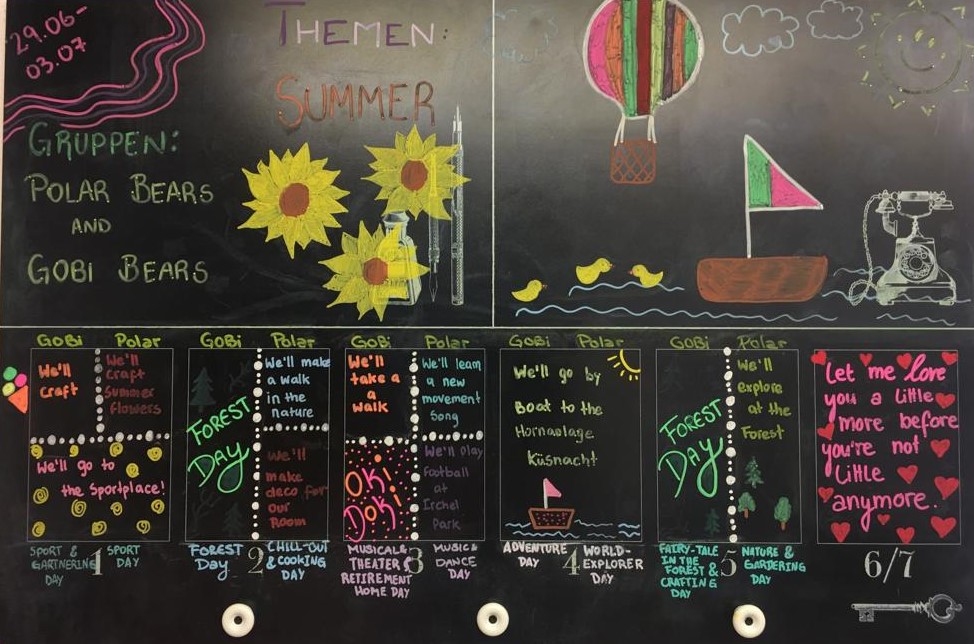 29.06-
03.07
THEMEN:
SUMMER
GRUPPEN:
POLAR BEARS
AND
GOBI BEARS
GOBI POLAR
We'll
craft
We'll
craft
Summer
flowers
We'll go to
the Sportplace!
SPORT &
GARTNERING
DAY
1
SPORT
DAY
GOBI POLAR
FOREST
DAY
We'll make
a walk
in the
nature
We'll
make
deco for
our
Room
FOREST
Day
2
CHILL-OUT
& COOKING
DAY
GOBI POLAR
We'll
take a
a
walk
We'll learn
a new
movement
Song
OK!
DOK!
We'll play
Football
at
Irchel
Park
MUSICAL &
THEATER &
RETIREMENT
HOME DAY
3
MUSIC &
DANCE
DAY
GOBI POLAR
We'll go by
Boat to the
Hornanlage
Küsnacht
ADVENTURE
DAY
4
WORLD-
EXPLORER
DAY
GOBI POLAR
FOREST
DAY
We'll
explore
at the
Forest
FAIRY-TALE
IN THE
FOREST &
CRAFTING
DAY
5
NATURE &
GARDERING
DAY
Let me love
you a little
more before
you're not
Little
anymore.
6/7